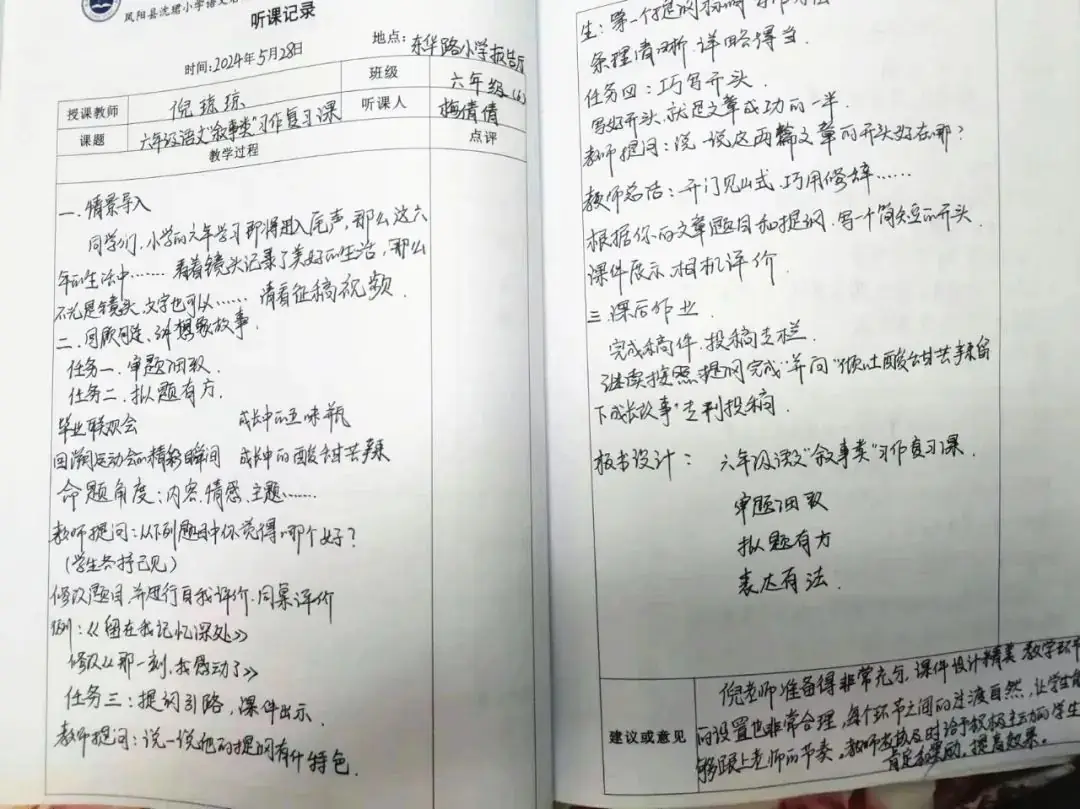 凤阳县洗塘小学语文
听课记录
时间:2024年5月28日
地点:东华路小学报告厅
授课教师
倪琼琼
班级
六年级(6)
课题
六年级语文"叙事类"习作复习课
听课人
梅倩倩
教学过程
点评
一.情景导入
同学们,小学的六年学习即将进入尾声,那么这六
年的生活中…… 看着镜头记录了美好的生活,那么
不光是镜头,文字也可以…… 请看征稿视频.
二.回顾 讲 故事.
任务一.审题细致
任务二.拟题有方.
毕业联欢会 成长中的五味瓶
回溯运动会的精彩瞬间 成长中的酸甜苦辣
命题角度:内容.情感.主题……
教师提问:以下列题目中你觉得哪个好?
(学生各持己见)
修改题目,并进行自我评价.同桌评价
例:《留在我记忆深处》
修改《那一刻,我感动了》
任务三:提纲引路,课件出示.
教师提问:说一说他的提纲有什特色.
生:第一个提纲
条理清晰 详略得当.
任务四:巧写开头.
写好开头,就是文章成功的一半.
教师提问:说一说这两篇文章的开头好在哪?
教师总结:开门见山式.巧用修辞……
根据你的文章题目和提纲.写一个简短的开头.
课件展示,相机评价.
三.课后作业.
完成稿件.投稿专栏.
继续按照提纲完成"并向"倾吐酸甜苦辣留
下成长故事"专刊投稿.
板书设计: 六年级语文"叙事类"习作复习课.
审题细致
拟题有方
表达有法.
建议或意见
倪老师准备得非常充分,课件设计精美 教学环节
的设置也非常合理,每个环节之间的过渡自然,让学生能
够跟上老师的节奏。教师 及时给予积极主动的学生
肯定和鼓励,提高效果。